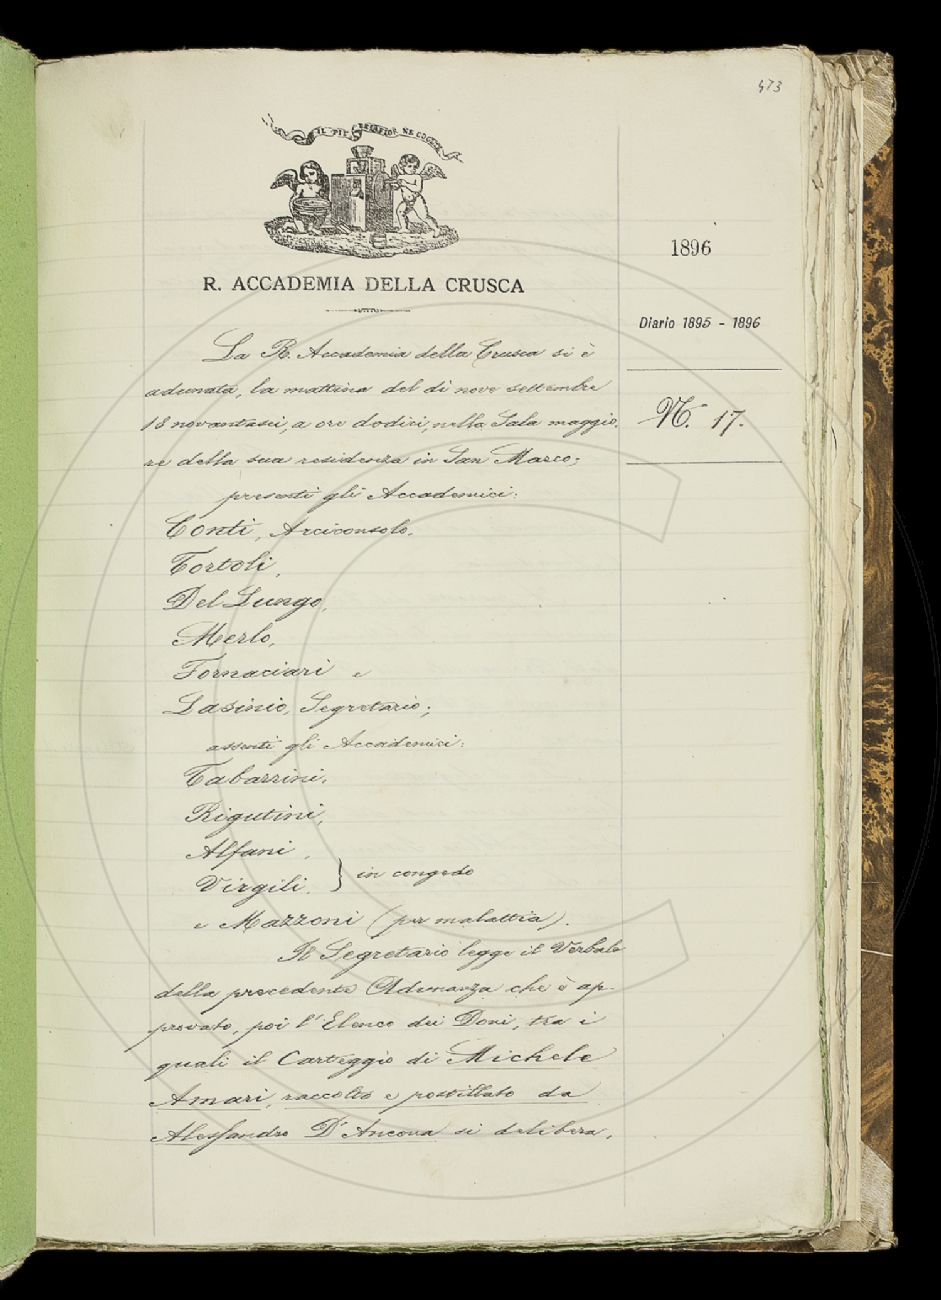 473
IL PIÙ BEL FIOR NE COGLIE
R. ACCADEMIA DELLA CRUSCA
1896
Diario 1895 - 1896
N.° 17.
La R. Accademia della Crusca si è
adunata, la mattina del dì nove settembre
18novantasei, a ore dodici, nella Sala maggio-
re della sua residenza in San Marco;
presenti gli Accademici:
Conti, Arciconsolo,
Tortoli,
Del Lungo,
Merlo,
Fornaciari e
Lasinio, Segretario;
assenti gli Accademici:
Tabarrini,
Rigutini,
Alfani,
Virgili, } in congedo
e Mazzoni (per malattia).
Il Segretario legge il Verbale
della precedente Adunanza che è ap-
provato, poi l'Elenco dei Doni, tra i
quali il Carteggio di Michele
Amari, raccolto e postillato da
Alessandro D'Ancona si delibera,